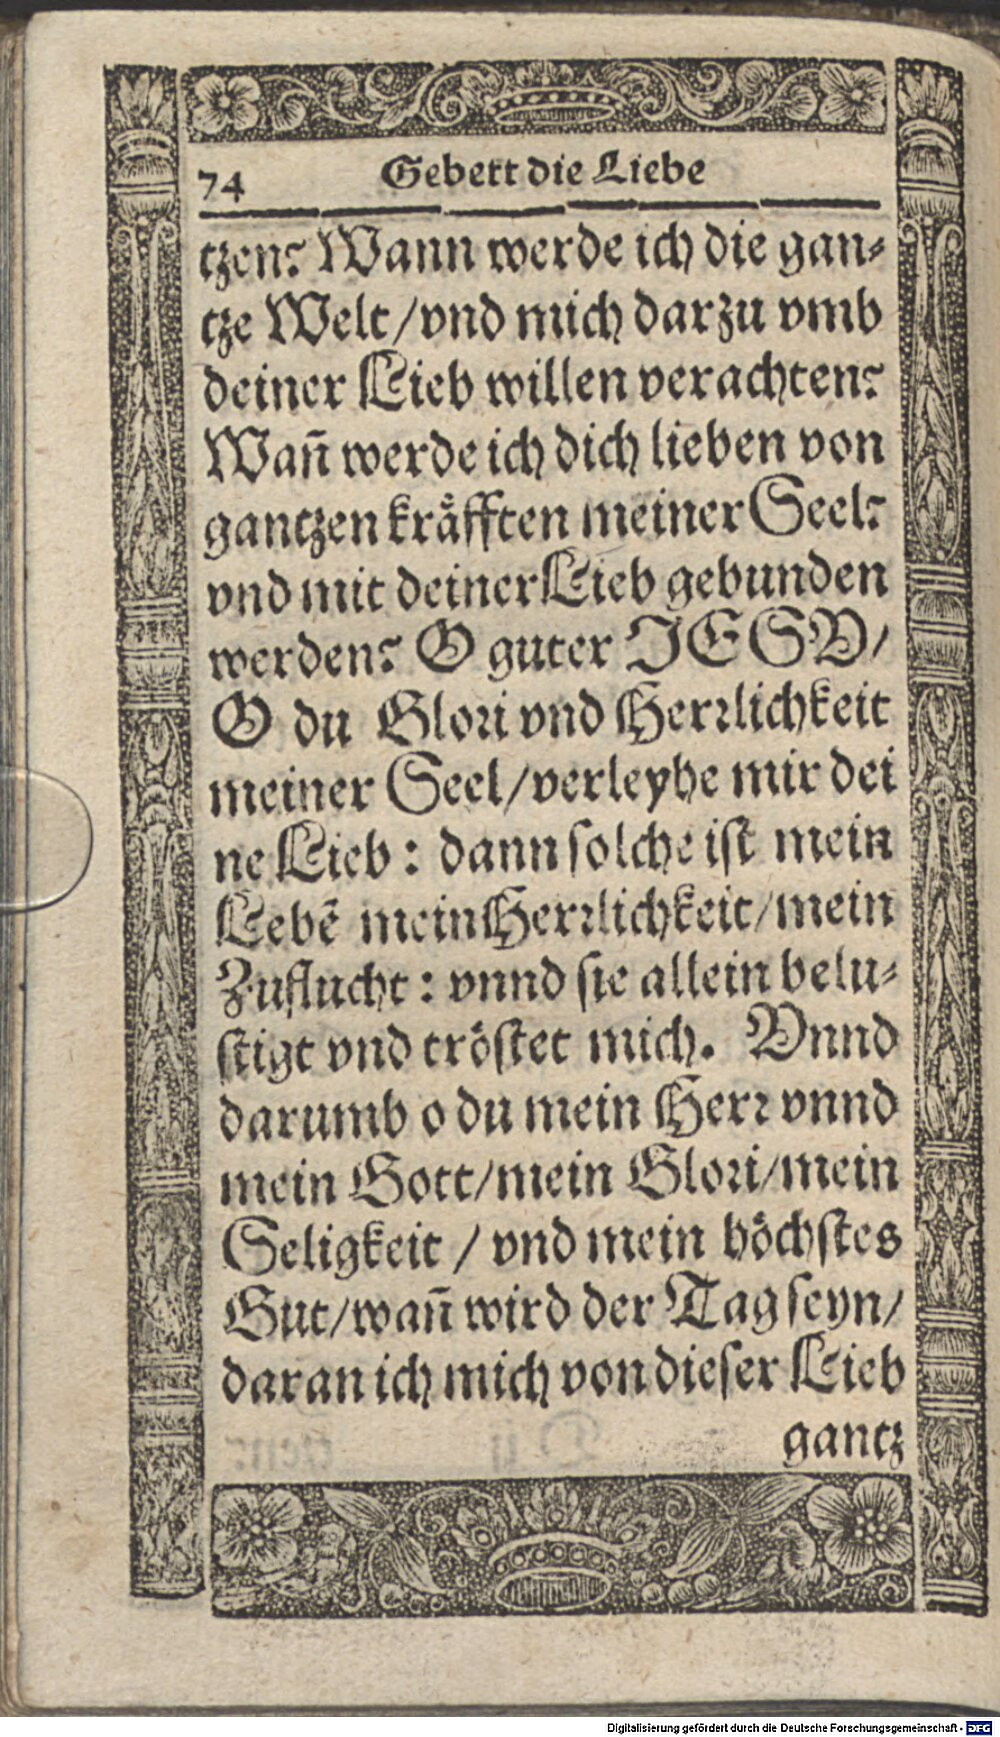 74 Gebett die Liebe
tzen? Wann werde ich die gan⸗
tze Welt / vnd mich darzu vmb
deiner Lieb willen verachten?
Wañ werde ich dich lieben von
gantzen kräfften meiner Seel?
vnd mit deiner Lieb gebunden
werden? O guter JESV /
O du Glori vnd Herrlichkeit
meiner Seel / verleyhe mir dei
ne Lieb : dann solche ist mein
Lebẽ mein Herrlichkeit / mein
Zuflucht : vnnd sie allein belu⸗
stigt vnd tröstet mich. Vnnd
darumb o du mein Herr vnnd
mein Gott / mein Glori / mein
Seligkeit / vnd mein höchstes
Gut / wañ wird der Tag seyn /
daran ich mich von dieser Lieb
gantz
Digitalisierung gefördert durch die Deutsche Forschungsgemeinschaft - DFG